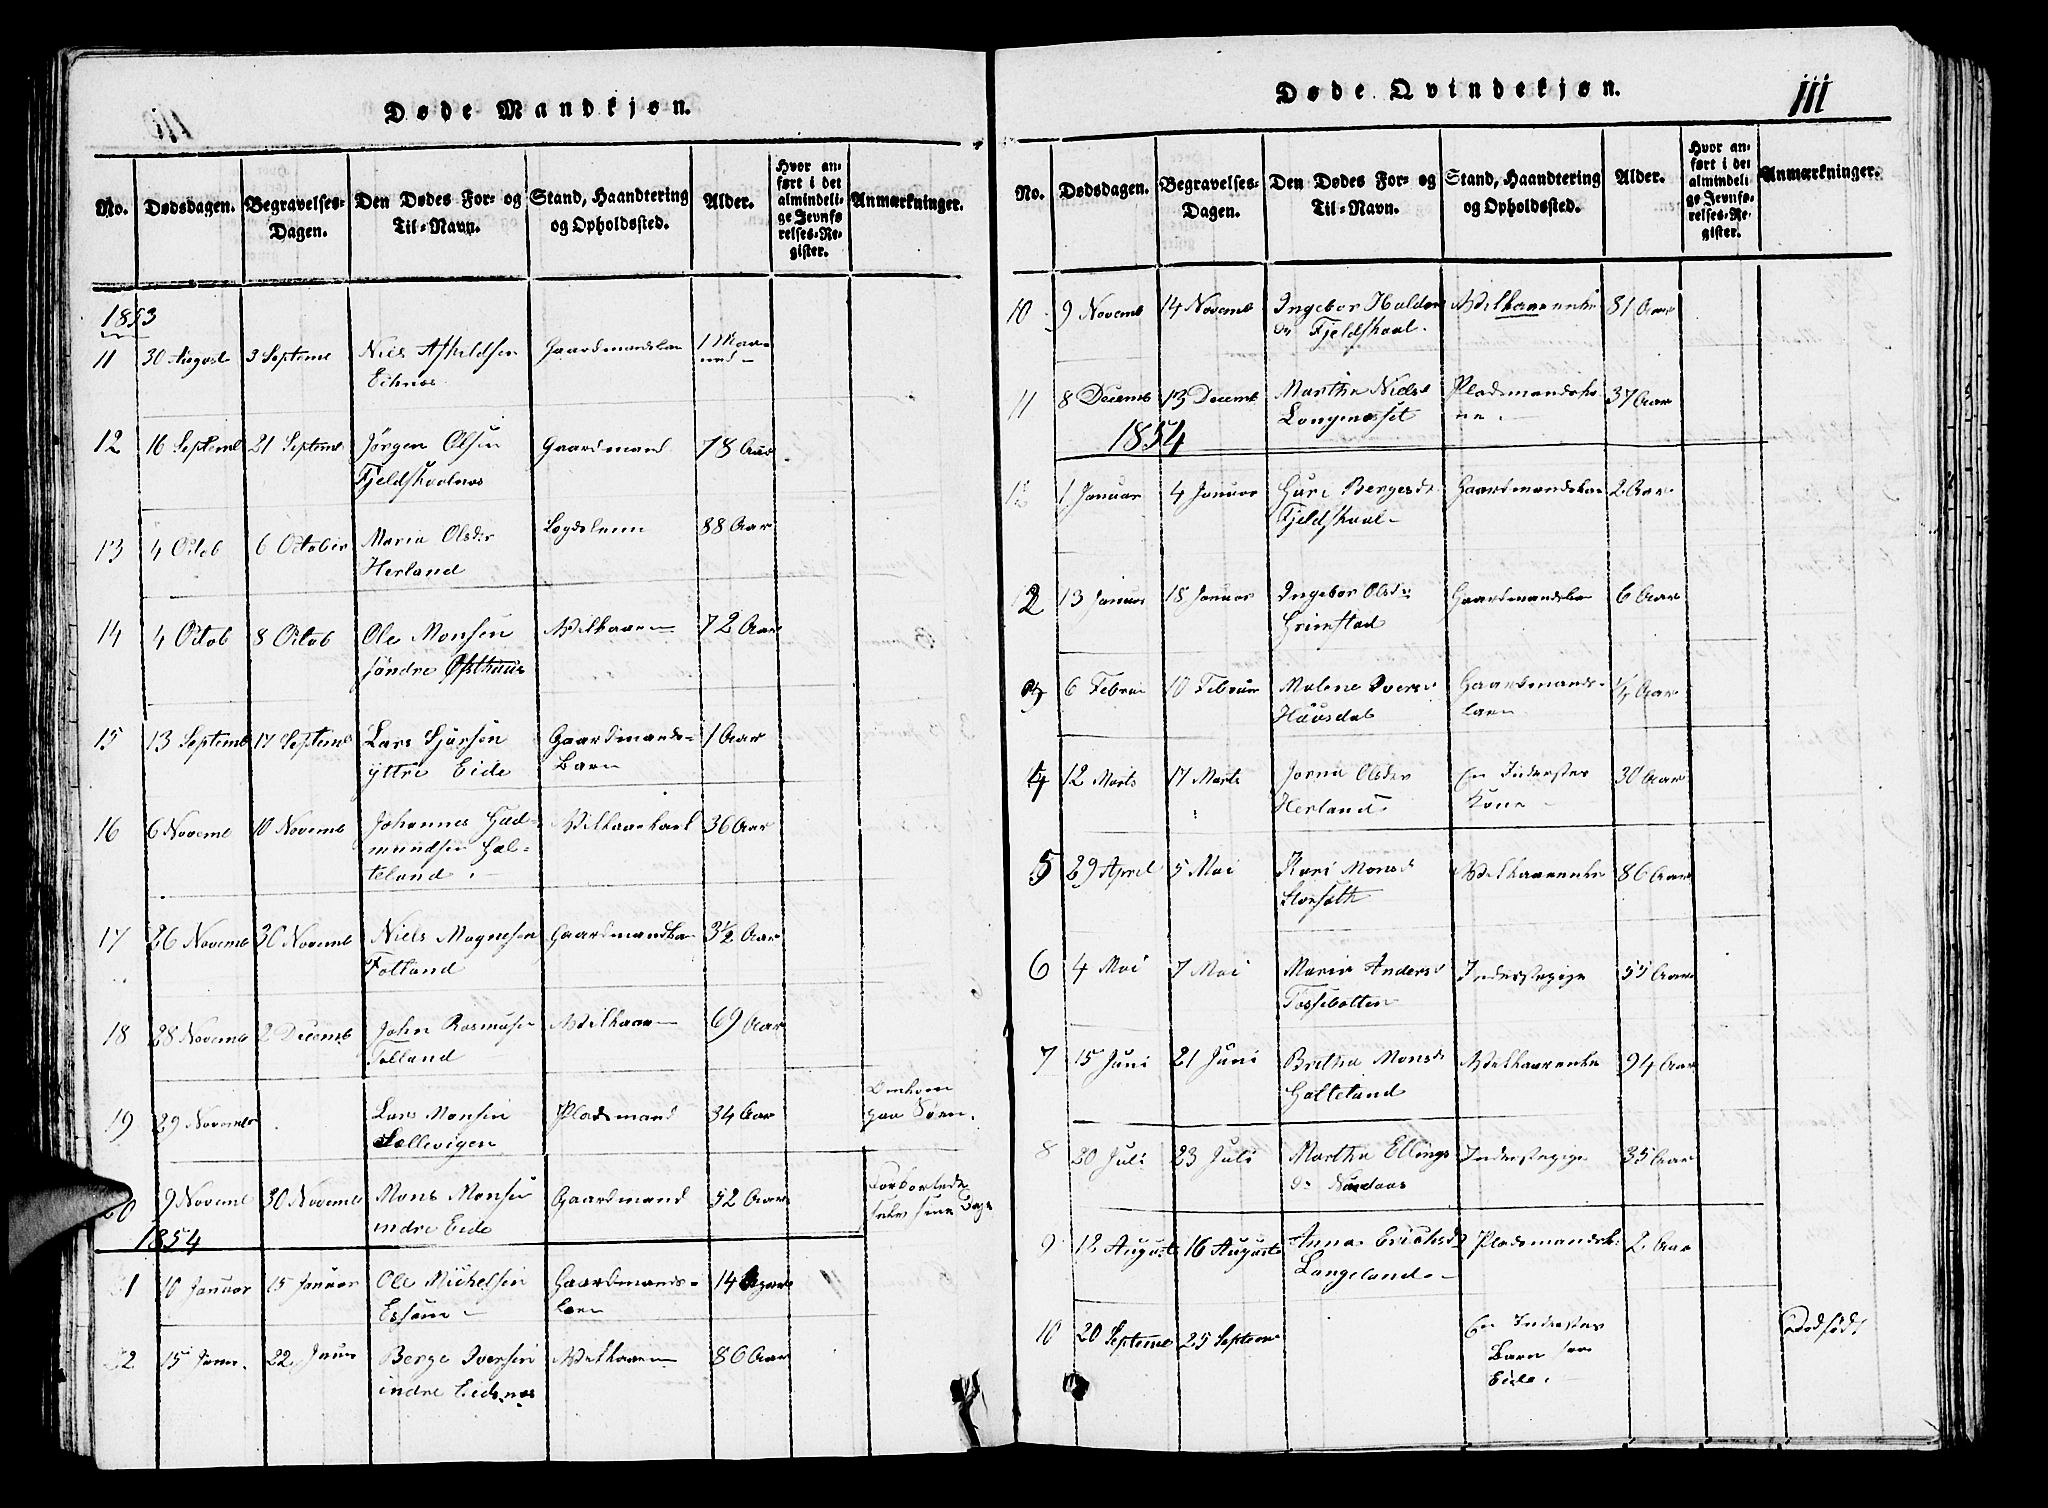 Døde Mandkjøn.
No. Dødsdagen. Begravelses-Dagen. Den Dødes For- og Til-Navn. Stand, Haandtering og Opholdssted. Alder. Hvor anført i det almindelige Jevnførelses-Register. Anmærkninger.
1853
11 30 August 3 Septemb Niels Gaardmandsba 1 Maaned
12 16 Septemb 21 Septemb Jørgen Olsen Gaardmand 78 Aar
Fjeldskaalnæs
13 4 Octob 6 October Maria Olsdr 88 Aar
Herland
14 4 Octob 8 Octob Ole Monsen 72 Aar
søndre Østhuus
15 13 Septemb 17 Septemb Lars Sjursen Gaardmands- 1 Aar
yttre Eide Barn
16 6 Novemb 10 Novemb Johannes Gud- 36 Aar
mundsen Hal-
teland
17 26 Novemb 30 Novemb Niels Magnesen Gaardmandsba 3½ Aar
Totland
18 28 Novemb 2 Decemb John Rasmusen 69 Aar
Totland
19 29 Novembr Lars Monsen Pladsmand 34 Aar Omkom
Sællevigen paa Søen.
20 9 Novemb 30 Novemb Mons Monsen Gaardmand 52 Aar
indre Eide
1854
1 10 Januar 15 Januar Ole Michelsen Gaardmands- 14
barn
2 15 Janr. 22 Januar Berge Iversen 86 Aar
indre Eidsnæs
Døde Qvindekjøn.
111
No. Dødsdagen. Begravelses-Dagen. Den Dødes For- og Til-Navn. Stand, Haandtering og Opholdssted. Alder. Hvor anført i det almindelige Jevnførelses-Register. Anmærkninger.
10 9 Novemb 14 Novemb Ingebor 81 Aar
Fjeldskaal.
11 8 Decemb 13 Decemb Martha Nielsd Pladsmandsko- 37 Aar
Langenæsset ne.
1854
1 Januar 4 Januar Guri Bergesdr Gaardmandsba 2 Aar
Fjeldskaal
2 13 Januar 18 Januar Ingebor Olsdr Gaardmandsba 6 Aar
Grimstad
3 6 Februar 10 Februar Malene Iversd Gaardmands- Aar
Hausdal barn
4 12 Marts 17 Marts Olsdr En Inderstes 30 Aar
Herland Kone
5 29 April 5 Mai Kari Monsd 86 Aar
Storsæth
6 4 Mai 7 Mai Maria Andersd Inderstepige 55 Aar
Tossebotten
7 15 Juni 21 Juni Britha Monsd 94 Aar
Halteland
8 20 Juli 23 Juli Martha Ellings Inderstepige 35 Aar
dr
9 12 August 16 August Anna Erichsdr Pladsmandsb. 2 Aar
Langeland
10 20 Septemb 25 Septemb En Inderstes Dødfødt
Barn fra
Eide.